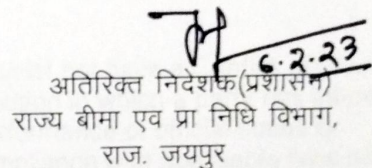 6.2.23
अतिरिक्त निदेशक(प्रशासन)
राज्य बीमा एव प्रा निधि विभाग,
राज. जयपुर